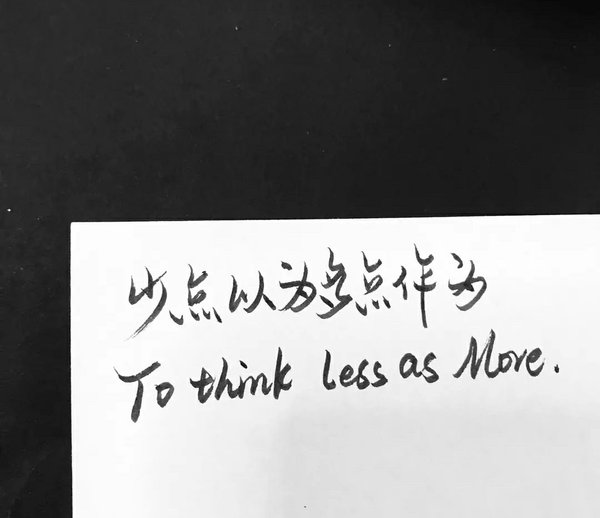 少点以为多点作为
To think less as More.